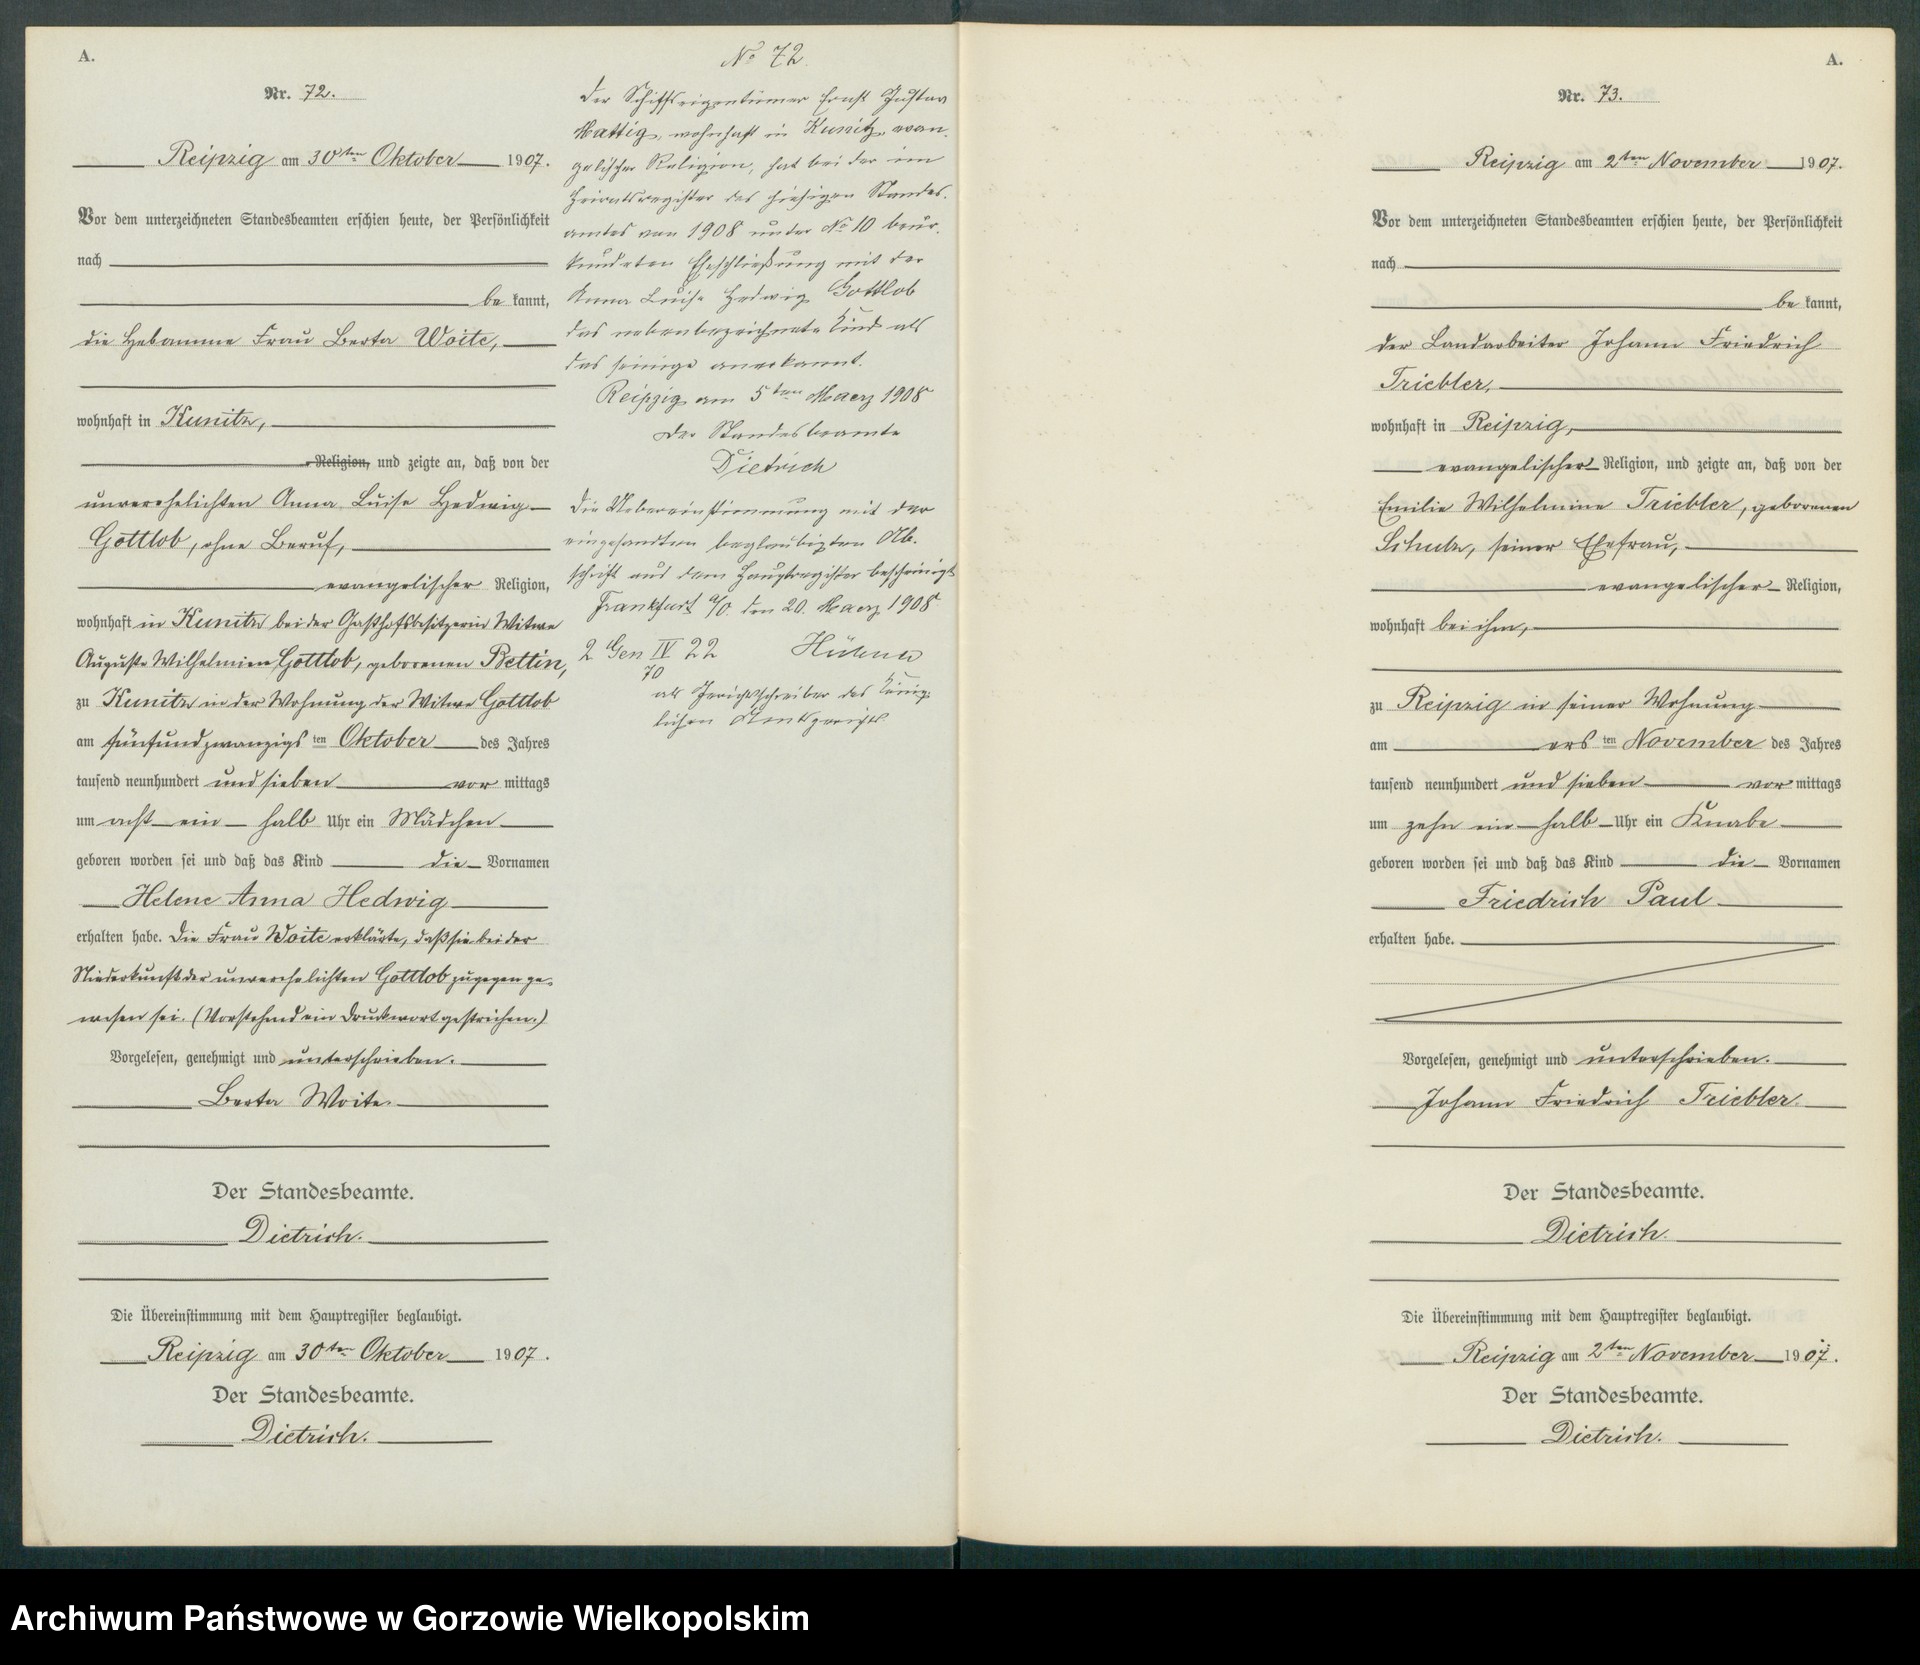 A.
Nr. 72.
Reipzig am 30ten Oktober 1907.
Vor dem unterzeichneten Standesbeamten erschien heute, der Persönlichkeit
nach
be kannt,
die Hebamme Frau Berta Woite,
wohnhaft in Kunitz,
Religion, und zeigte an, daß von der
unverehelichten Anna Luise Hedwig
Gottlob, ohne Beruf,
evangelischer Religion,
wohnhaft in Kunitz bei der Gasthofsbesitzerin Witwe
Auguste Wilhelmine Gottlob, geborenen Bettin,
zu Kunitz in der Wohnung der Witwe Gottlob
am fünfundzwanzigs ten Oktober des Jahres
tausend neunhundert und sieben vor mittags
um acht ein halb Uhr ein Mädchen
geboren worden sei und daß das Kind die Vornamen
Helene Anna Hedwig
erhalten habe. Die Frau Woite erklärte, daß sie bei der
Niederkunft der unverehelichten Gottlob zugegen ge-
wesen sei. (Vorstehend ein Druckwort gestrichen.)
Vorgelesen, genehmigt und unterschrieben.
Berta Woite.
Der Standesbeamte.
Dietrich.
Die Übereinstimmung mit dem Hauptregister beglaubigt.
Reipzig am 30ten Oktober 1907.
Der Standesbeamte.
Dietrich.
No 72
Der Schiffseigentümer Ernst Gustav
Mattig, wohnhaft in Kunitz, evan-
gelischer Religion, hat bei der im
Heiratsregister des hiesigen Standes-
amtes von 1908 unter No 10 beur-
kundeten Eheschließung mit der
Anna Luise Hedwig Gottlob
das nebenbezeichnete Kind als
das seinige anerkannt.
Reipzig am 5ten Maerz 1908
Der Standesbeamte
Dietrich
Die Uebereinstimmung mit der
eingesandten beglaubigten Ab-
schrift aus dem Hauptregister bescheinigt
Frankfurt a/O. den 20. Maerz 1908
2 Gen IV 22
70
als Gerichtsschreiber des König-
lichen Amtsgerichts.
A.
Nr. 73.
Reipzig am 2ten November 1907.
Vor dem unterzeichneten Standesbeamten erschien heute, der Persönlichkeit
nach
be kannt,
der Landarbeiter Johann Friedrich
Triebler,
wohnhaft in Reipzig,
evangelischer Religion, und zeigte an, daß von der
Emilie Wilhelmine Triebler, geborenen
Schulz, seiner Ehefrau,
evangelischer Religion,
wohnhaft bei ihm,
zu Reipzig in seiner Wohnung
am ers ten November des Jahres
tausend neunhundert und sieben vor mittags
um zehn ein halb Uhr ein Knabe
geboren worden sei und daß das Kind die Vornamen
Friedrich Paul
erhalten habe.
Vorgelesen, genehmigt und unterschrieben.
Johann Friedrich Triebler.
Der Standesbeamte.
Dietrich.
Die Übereinstimmung mit dem Hauptregister beglaubigt.
Reipzig am 2ten November 1907.
Der Standesbeamte.
Dietrich.
Archiwum Państwowe w Gorzowie Wielkopolskim